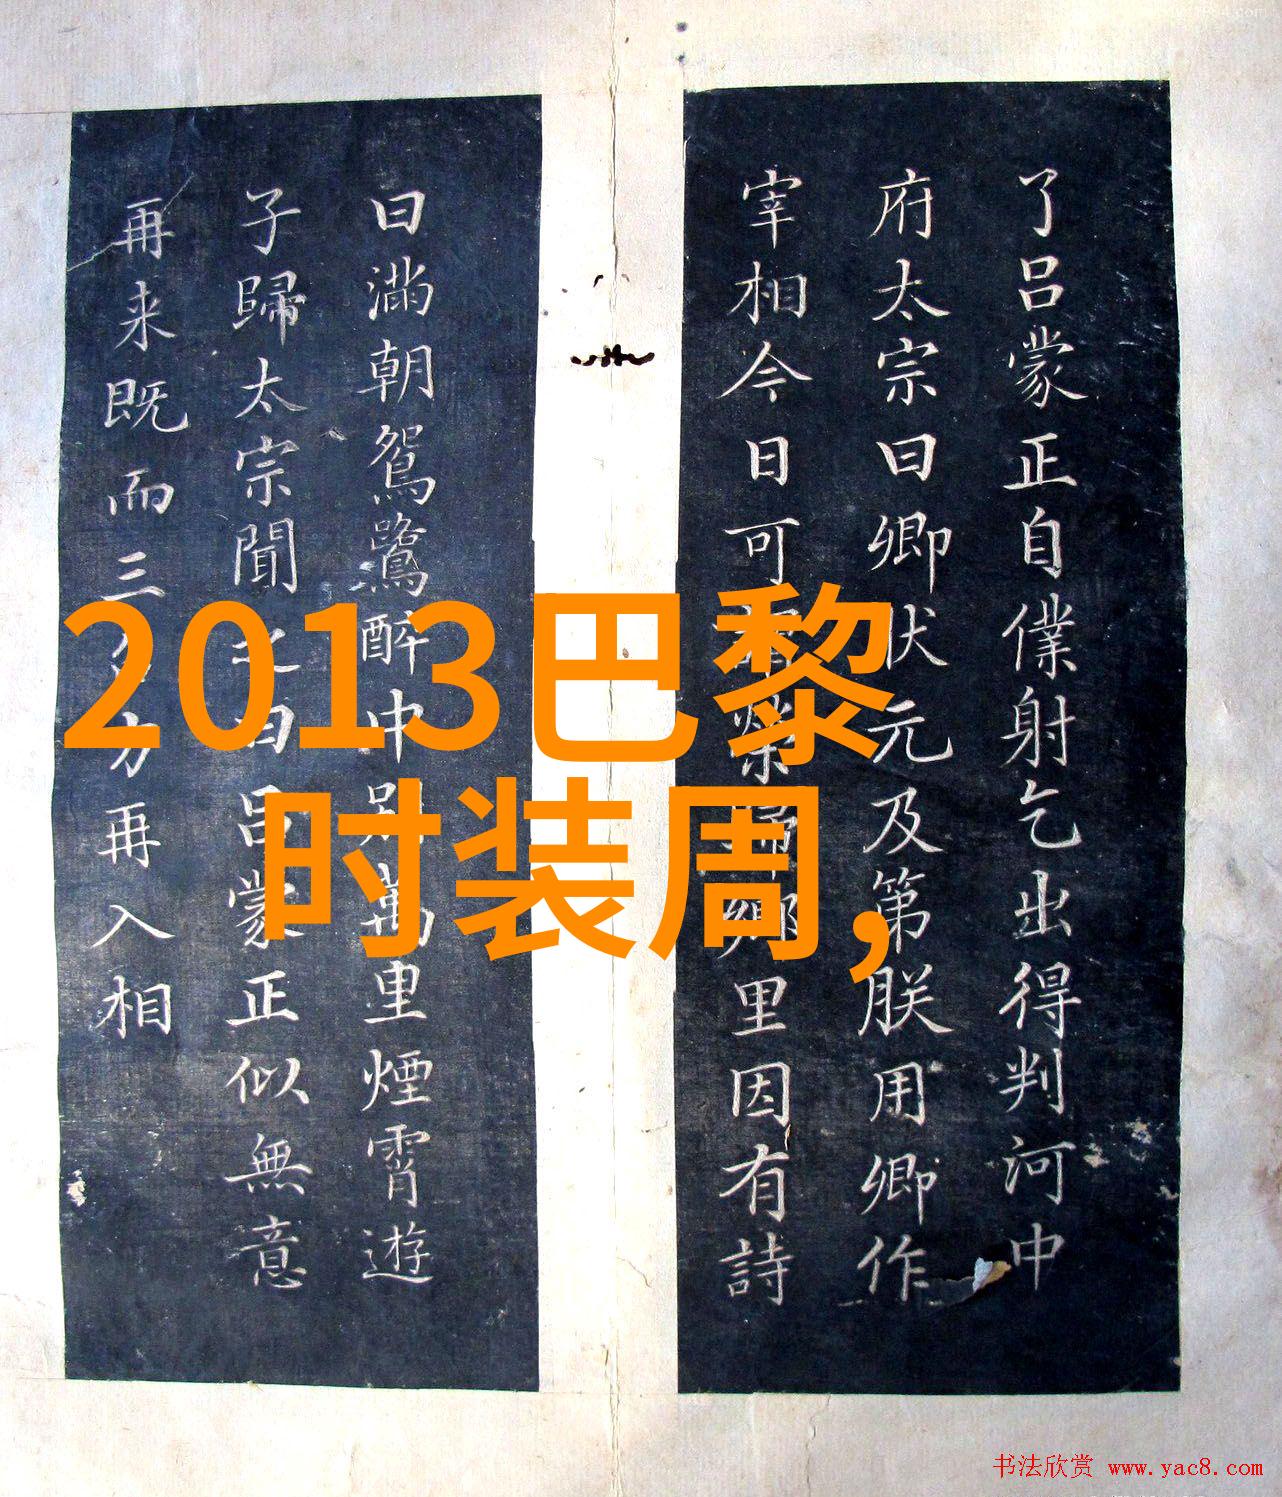 了吕蒙正自僕射乞出得判河中
府太宗曰卿状元及第朕用卿作
宰相今日可榮歸鄉里因有詩
曰滿朝鴛鷺醉中別萬里煙霄遊
子歸太宗聞之曰吕蒙正似無意
再来既而三方再入相
2013巴黎
时装周,
书法欣赏 www.yac8.com